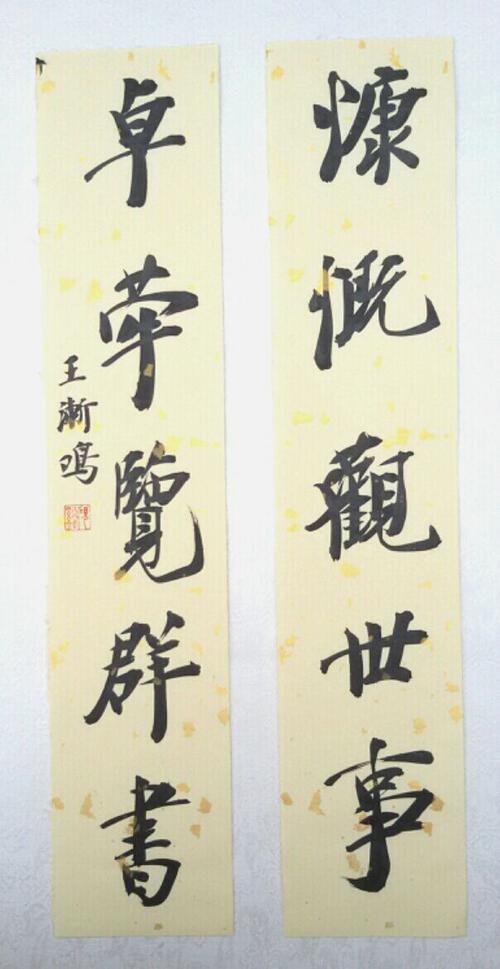 慷慨觀世事
卓犖覽群書
王漸鳴